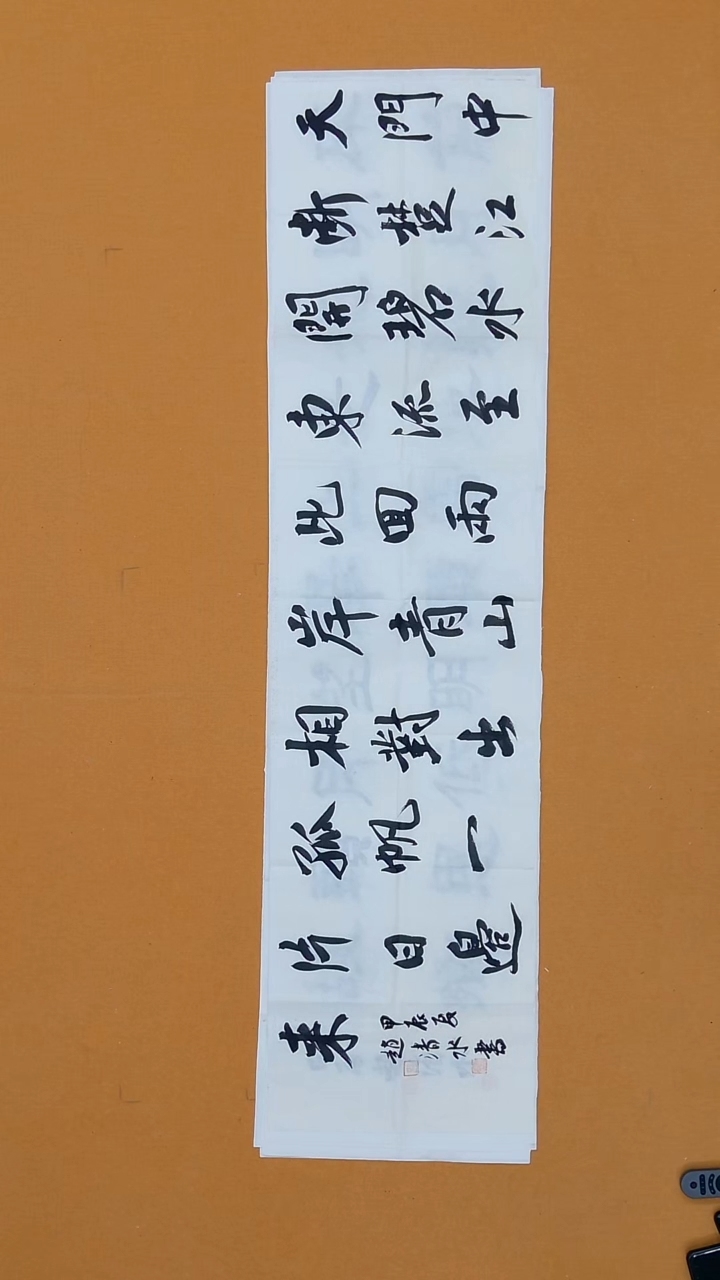 天門中
斷楚江
開碧水
東流至
此回兩
岸青山
相對出
孤帆一
片日邊
來
甲辰夏
趙清水書